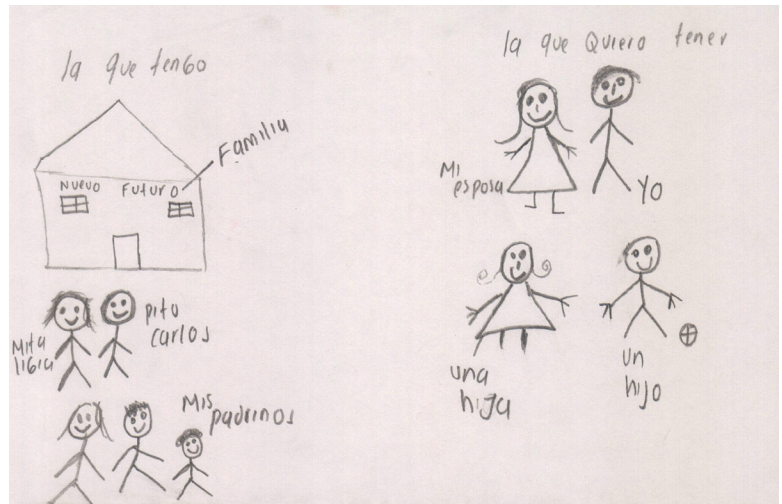 la que tengo
Familia
Nuevo Futuro
Mita
ligia
pito
carlos
Mis
padrinos
la que Quiero tener
Mi
esposa
Yo
una
hija
un
hijo